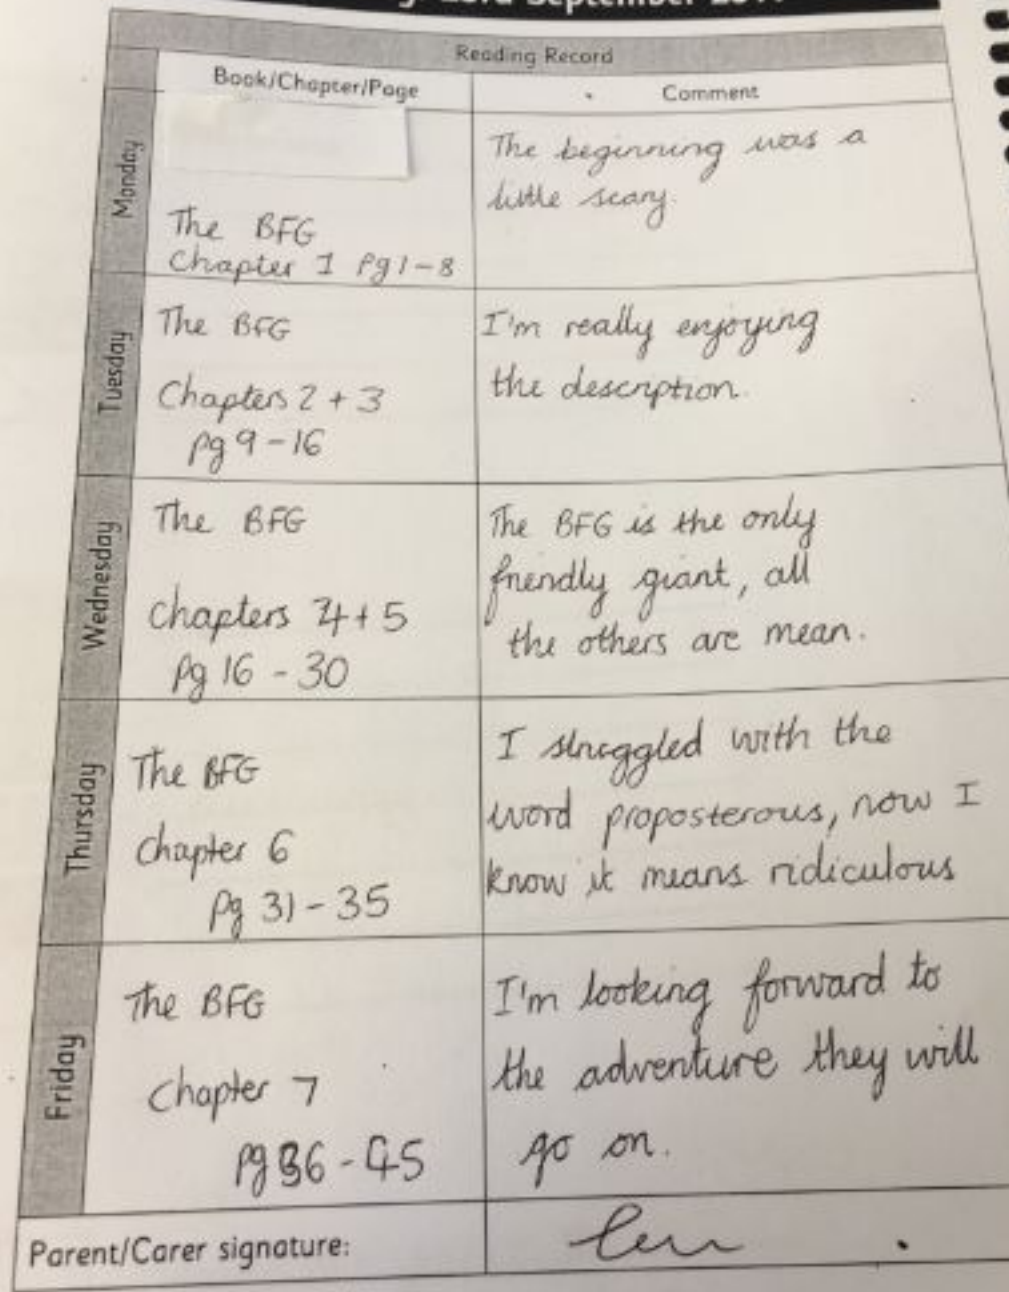 23rd September 201
Reading Record
Book/Chapter/Page
Comment
Monday
The BFG
Chapter 1 Pg 1-8
The beginning was a
little scary.
Tuesday
The BFG
Chapters 2 + 3
pg 9-16
I'm really enjoying
the description.
Wednesday
The BFG
Chapters 4+5
Pg 16 - 30
The BFG is the only
friendly giant, all
the others are mean.
Thursday
The BFG
Chapter 6
Pg 31-35
I struggled with the
word proposterous, now I
know it means ridiculous
Friday
The BFG
Chapter 7
pg 36 - 45
I'm looking forward to
the adventure they will
go on.
Parent/Carer signature: